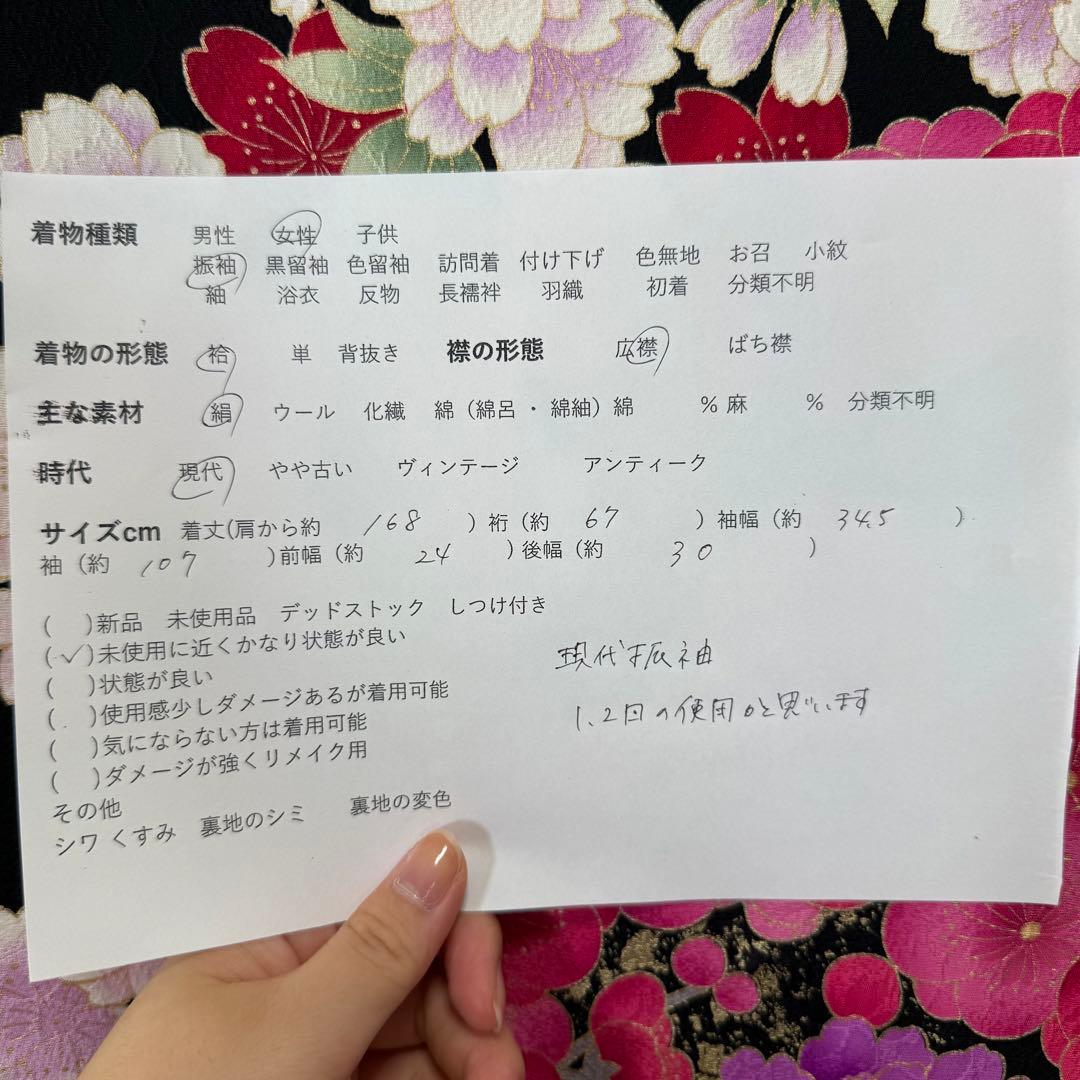 着物種類 男性 女性 子供
振袖 黒留袖 色留袖 訪問着 付け下げ 色無地 お召 小紋
紬 浴衣 反物 長襦袢 羽織 初着 分類不明
着物の形態 袷 単 背抜き 襟の形態 広襟 ばち襟
主な素材 絹 ウール 化繊 綿（綿呂・綿紬）綿 ％麻 ％ 分類不明
時代 現代 やや古い ヴィンテージ アンティーク
サイズcm 着丈(肩から約 168 ）裄（約 67 ）袖幅（約 34.5 ）
袖（約 107 )前幅（約 24 )後幅（約 30 )
( )新品 未使用品 デッドストック しつけ付き
(✓)未使用に近くかなり状態が良い
( )状態が良い
( )使用感少しダメージあるが着用可能
( )気にならない方は着用可能
( )ダメージが強くリメイク用
その他
シワ くすみ 裏地のシミ 裏地の変色
現代振袖
1、2回の使用かと思います